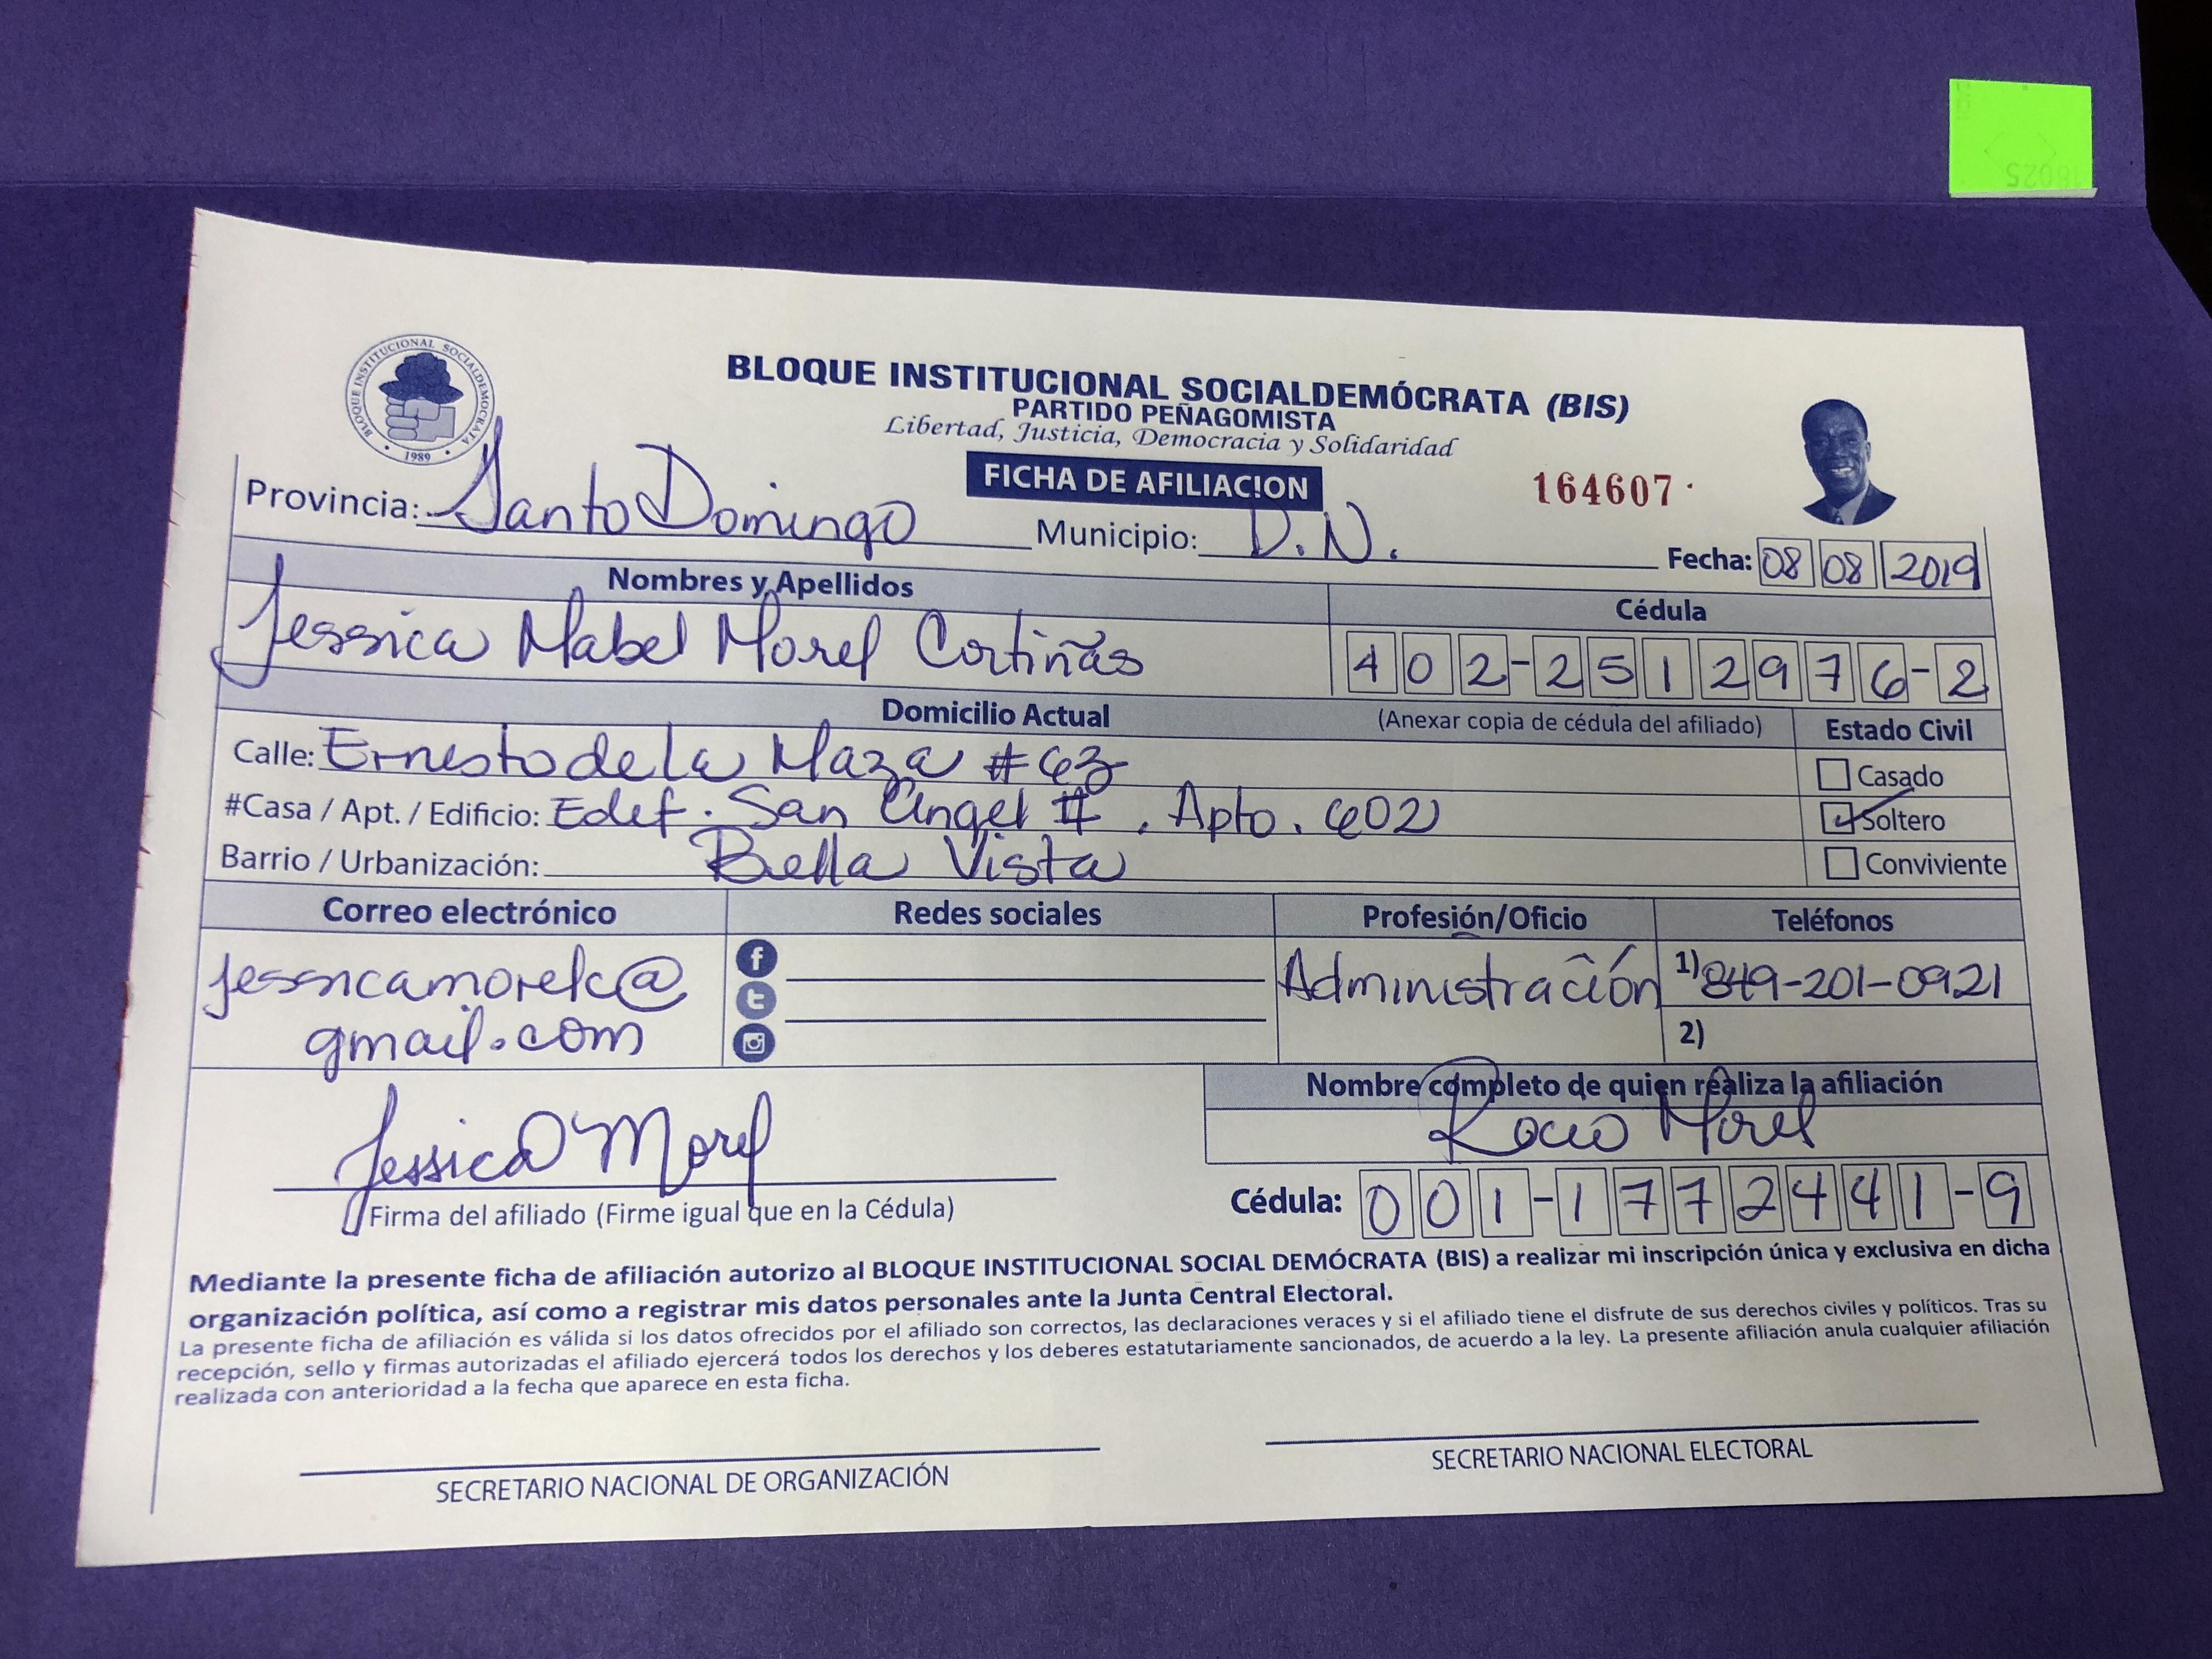 BLOQUE INSTITUCIONAL SOCIALDEMOCRATA
1989
BLOQUE INSTITUCIONAL SOCIALDEMÓCRATA (BIS)
PARTIDO PEÑAGOMISTA
Libertad, Justicia, Democracia y Solidaridad
FICHA DE AFILIACION
164607
Provincia: Santo Domingo Municipio: D.N. Fecha: 08 08 2019
Nombres y Apellidos Cédula
Jessica Mabel Morel Cortiñas 402-2512976-2
Domicilio Actual (Anexar copia de cédula del afiliado) Estado Civil
Calle: Ernesto de la Maza #63 Casado
#Casa / Apt. / Edificio: Edif. San Angel II, Apto. 602 Soltero
Barrio / Urbanización: Bella Vista Conviviente
Correo electrónico Redes sociales Profesión/Oficio Teléfonos
jessicamorelc@ Administración 1) 849-201-0921
gmail.com 2)
Nombre completo de quien realiza la afiliación
Jessica Morel Rocio Morel
Firma del afiliado (Firme igual que en la Cédula) Cédula: 001-1772441-9
Mediante la presente ficha de afiliación autorizo al BLOQUE INSTITUCIONAL SOCIAL DEMÓCRATA (BIS) a realizar mi inscripción única y exclusiva en dicha
organización política, así como a registrar mis datos personales ante la Junta Central Electoral.
La presente ficha de afiliación es válida si los datos ofrecidos por el afiliado son correctos, las declaraciones veraces y si el afiliado tiene el disfrute de sus derechos civiles y políticos. Tras su
recepción, sello y firmas autorizadas el afiliado ejercerá todos los derechos y los deberes estatutariamente sancionados, de acuerdo a la ley. La presente afiliación anula cualquier afiliación
realizada con anterioridad a la fecha que aparece en esta ficha.
SECRETARIO NACIONAL DE ORGANIZACIÓN SECRETARIO NACIONAL ELECTORAL